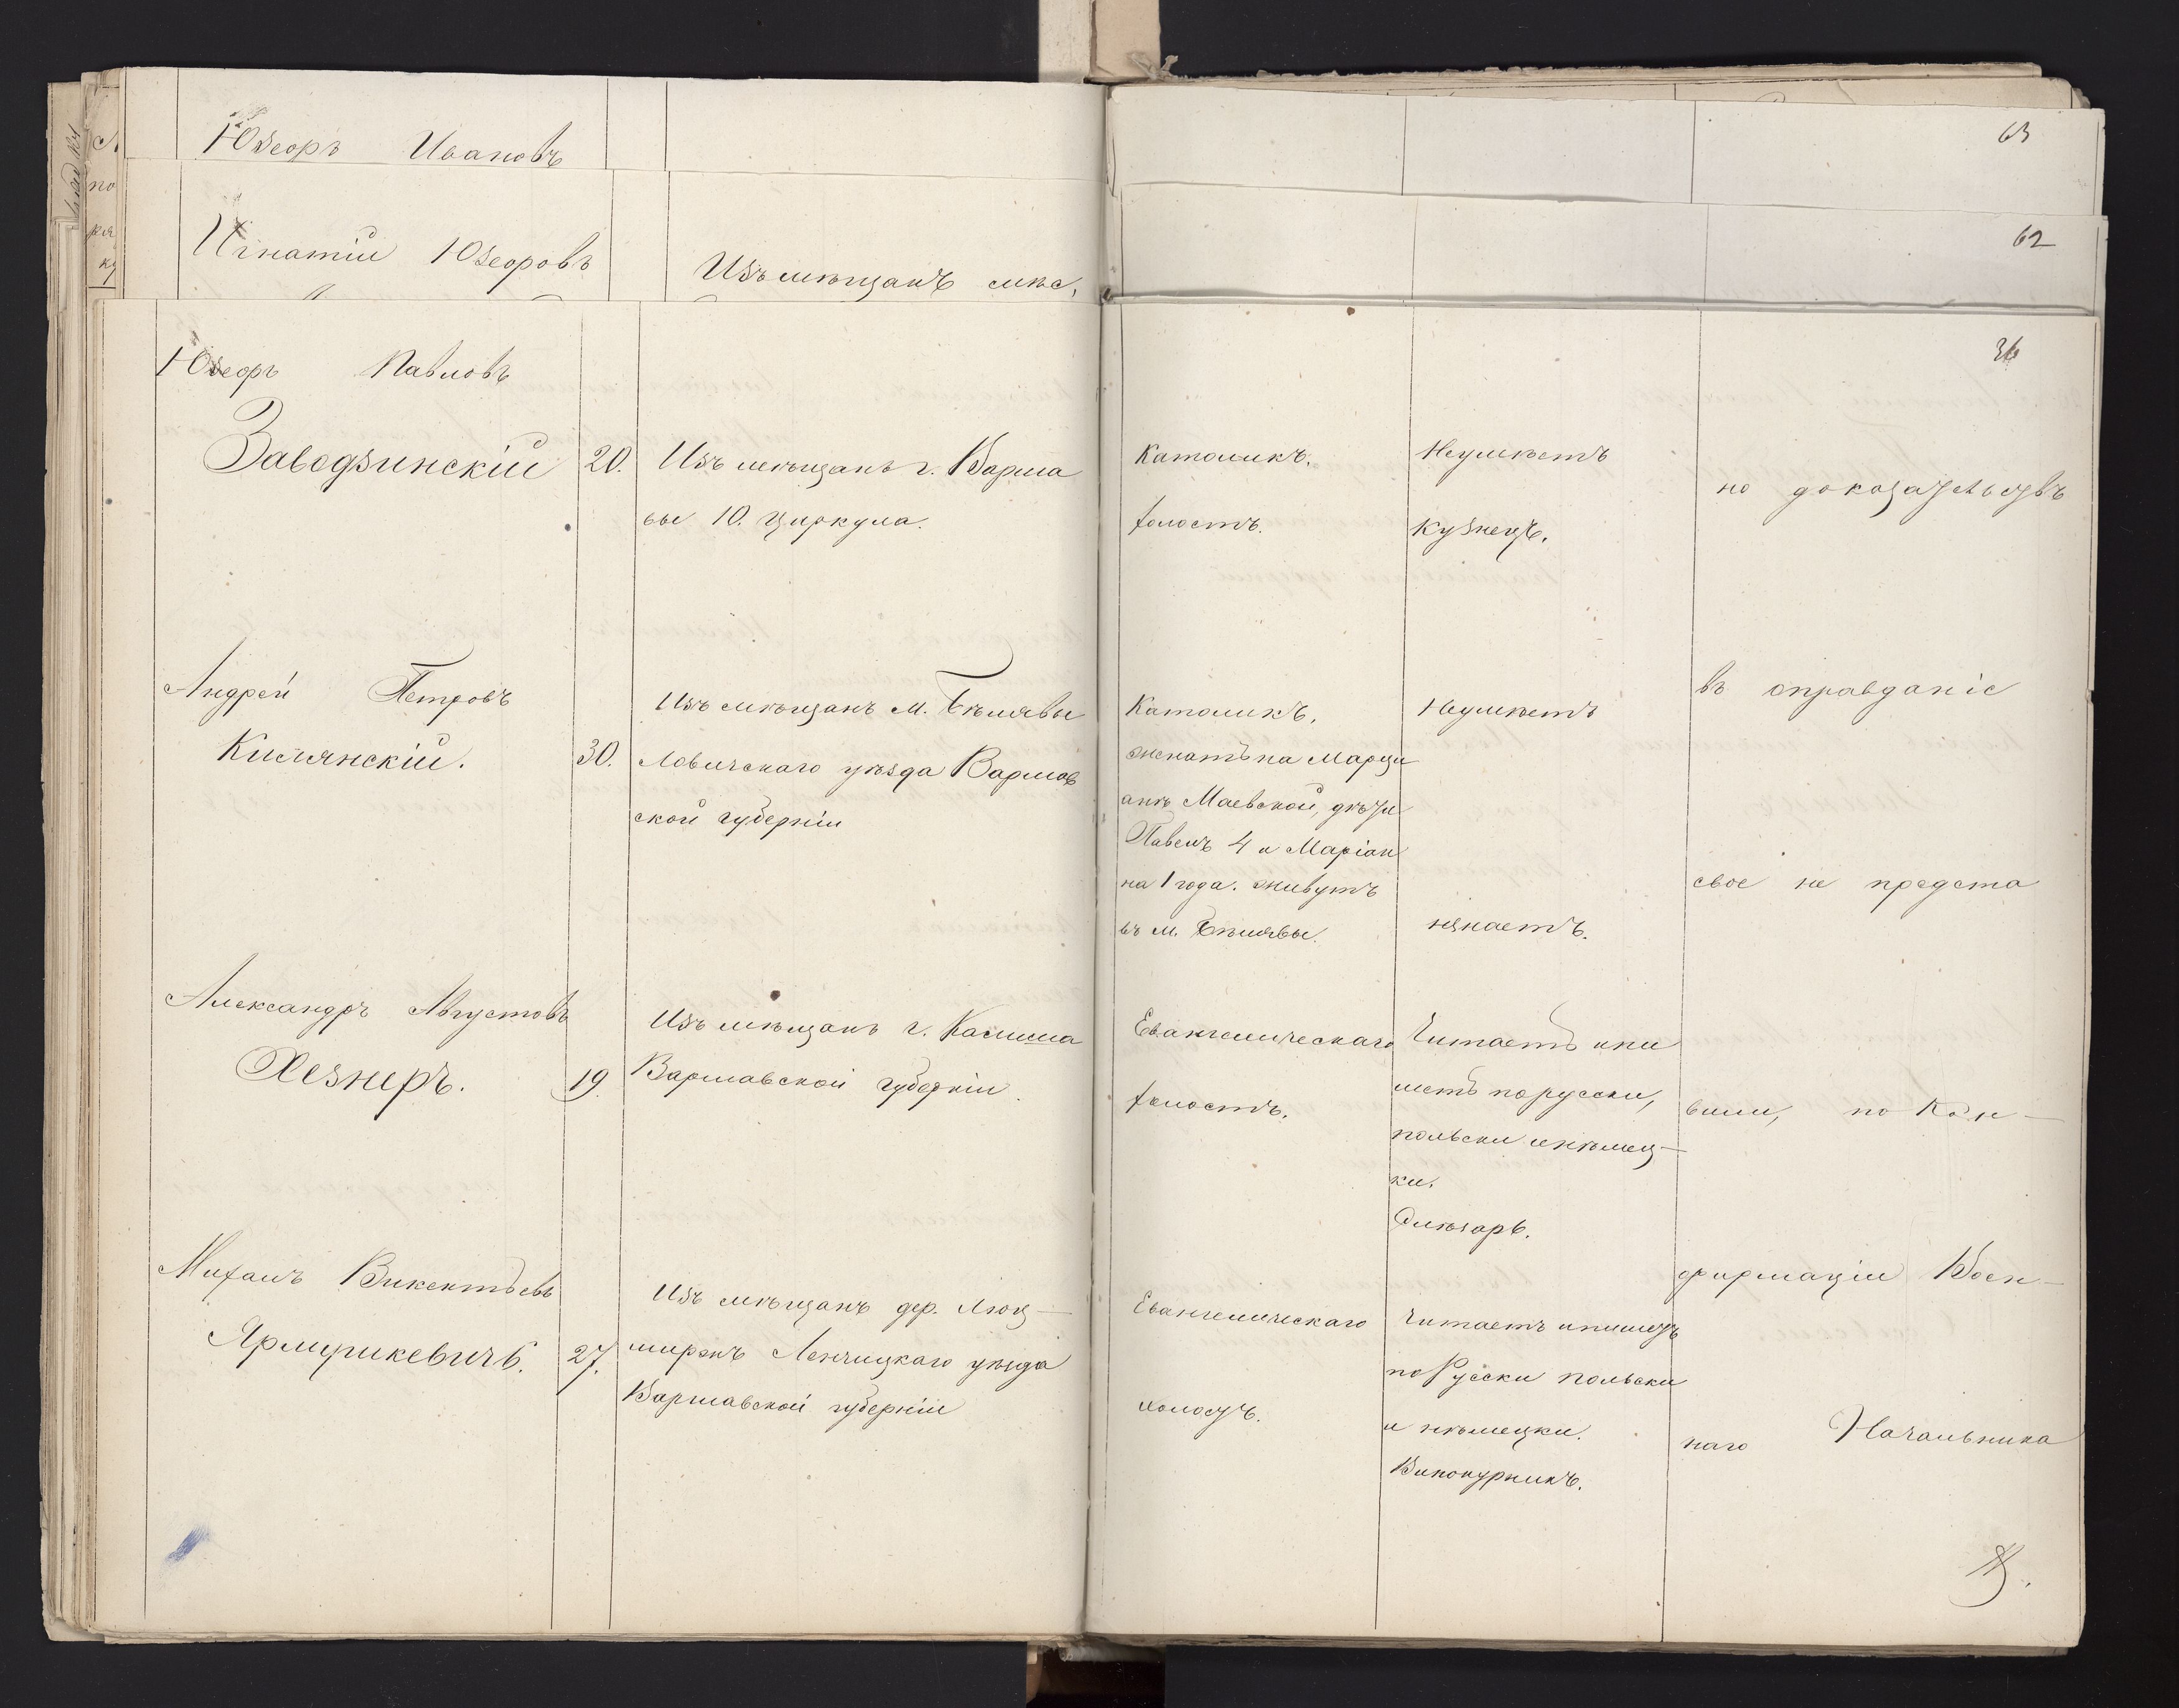 Юзефъ Ивановъ
63
Игнатій Юзефовъ
Изъ мѣщанъ мѣс.
62
36
Юзефъ Павловъ
Заводзинскій
20.
Изъ мѣщанъ г. Варша
вы 10. Циркула.
Католикъ.
холостъ.
Неумѣетъ
кузнецъ.
но доказательствъ
Андрей Петровъ
Килянскій.
30.
Изъ мѣщанъ м. Бѣлявы
Ловичскаго уѣзда Варшав
ской губерніи
Католикъ.
женатъ на Марци
аннѣ Маевской, дѣти
Павелъ 4 и Маріан
на 1 года. живутъ
въ м. Бѣлявы.
Неумѣетъ
незнаетъ.
въ оправданіе
свое не предста
Александръ Августовъ
Хезнеръ.
19.
Изъ мѣщанъ г. Калиша
Варшавской губерніи.
Евангелическаго
холостъ.
Читаетъ и пи
шетъ порусски,
польски и нѣмец-
ки.
Слѣсарь.
вили, по Кон-
Михаилъ Викентьевъ
Ярмушкевичъ.
27.
Изъ мѣщанъ дер. Люц-
миржъ Ленчицкаго уѣзда
Варшавской губерніи
Евангелическаго
холостъ.
Читаетъ и пишетъ
по Русски польски
и нѣмецки.
Винокурникъ.
фирмаціи Воен-
наго Начальника